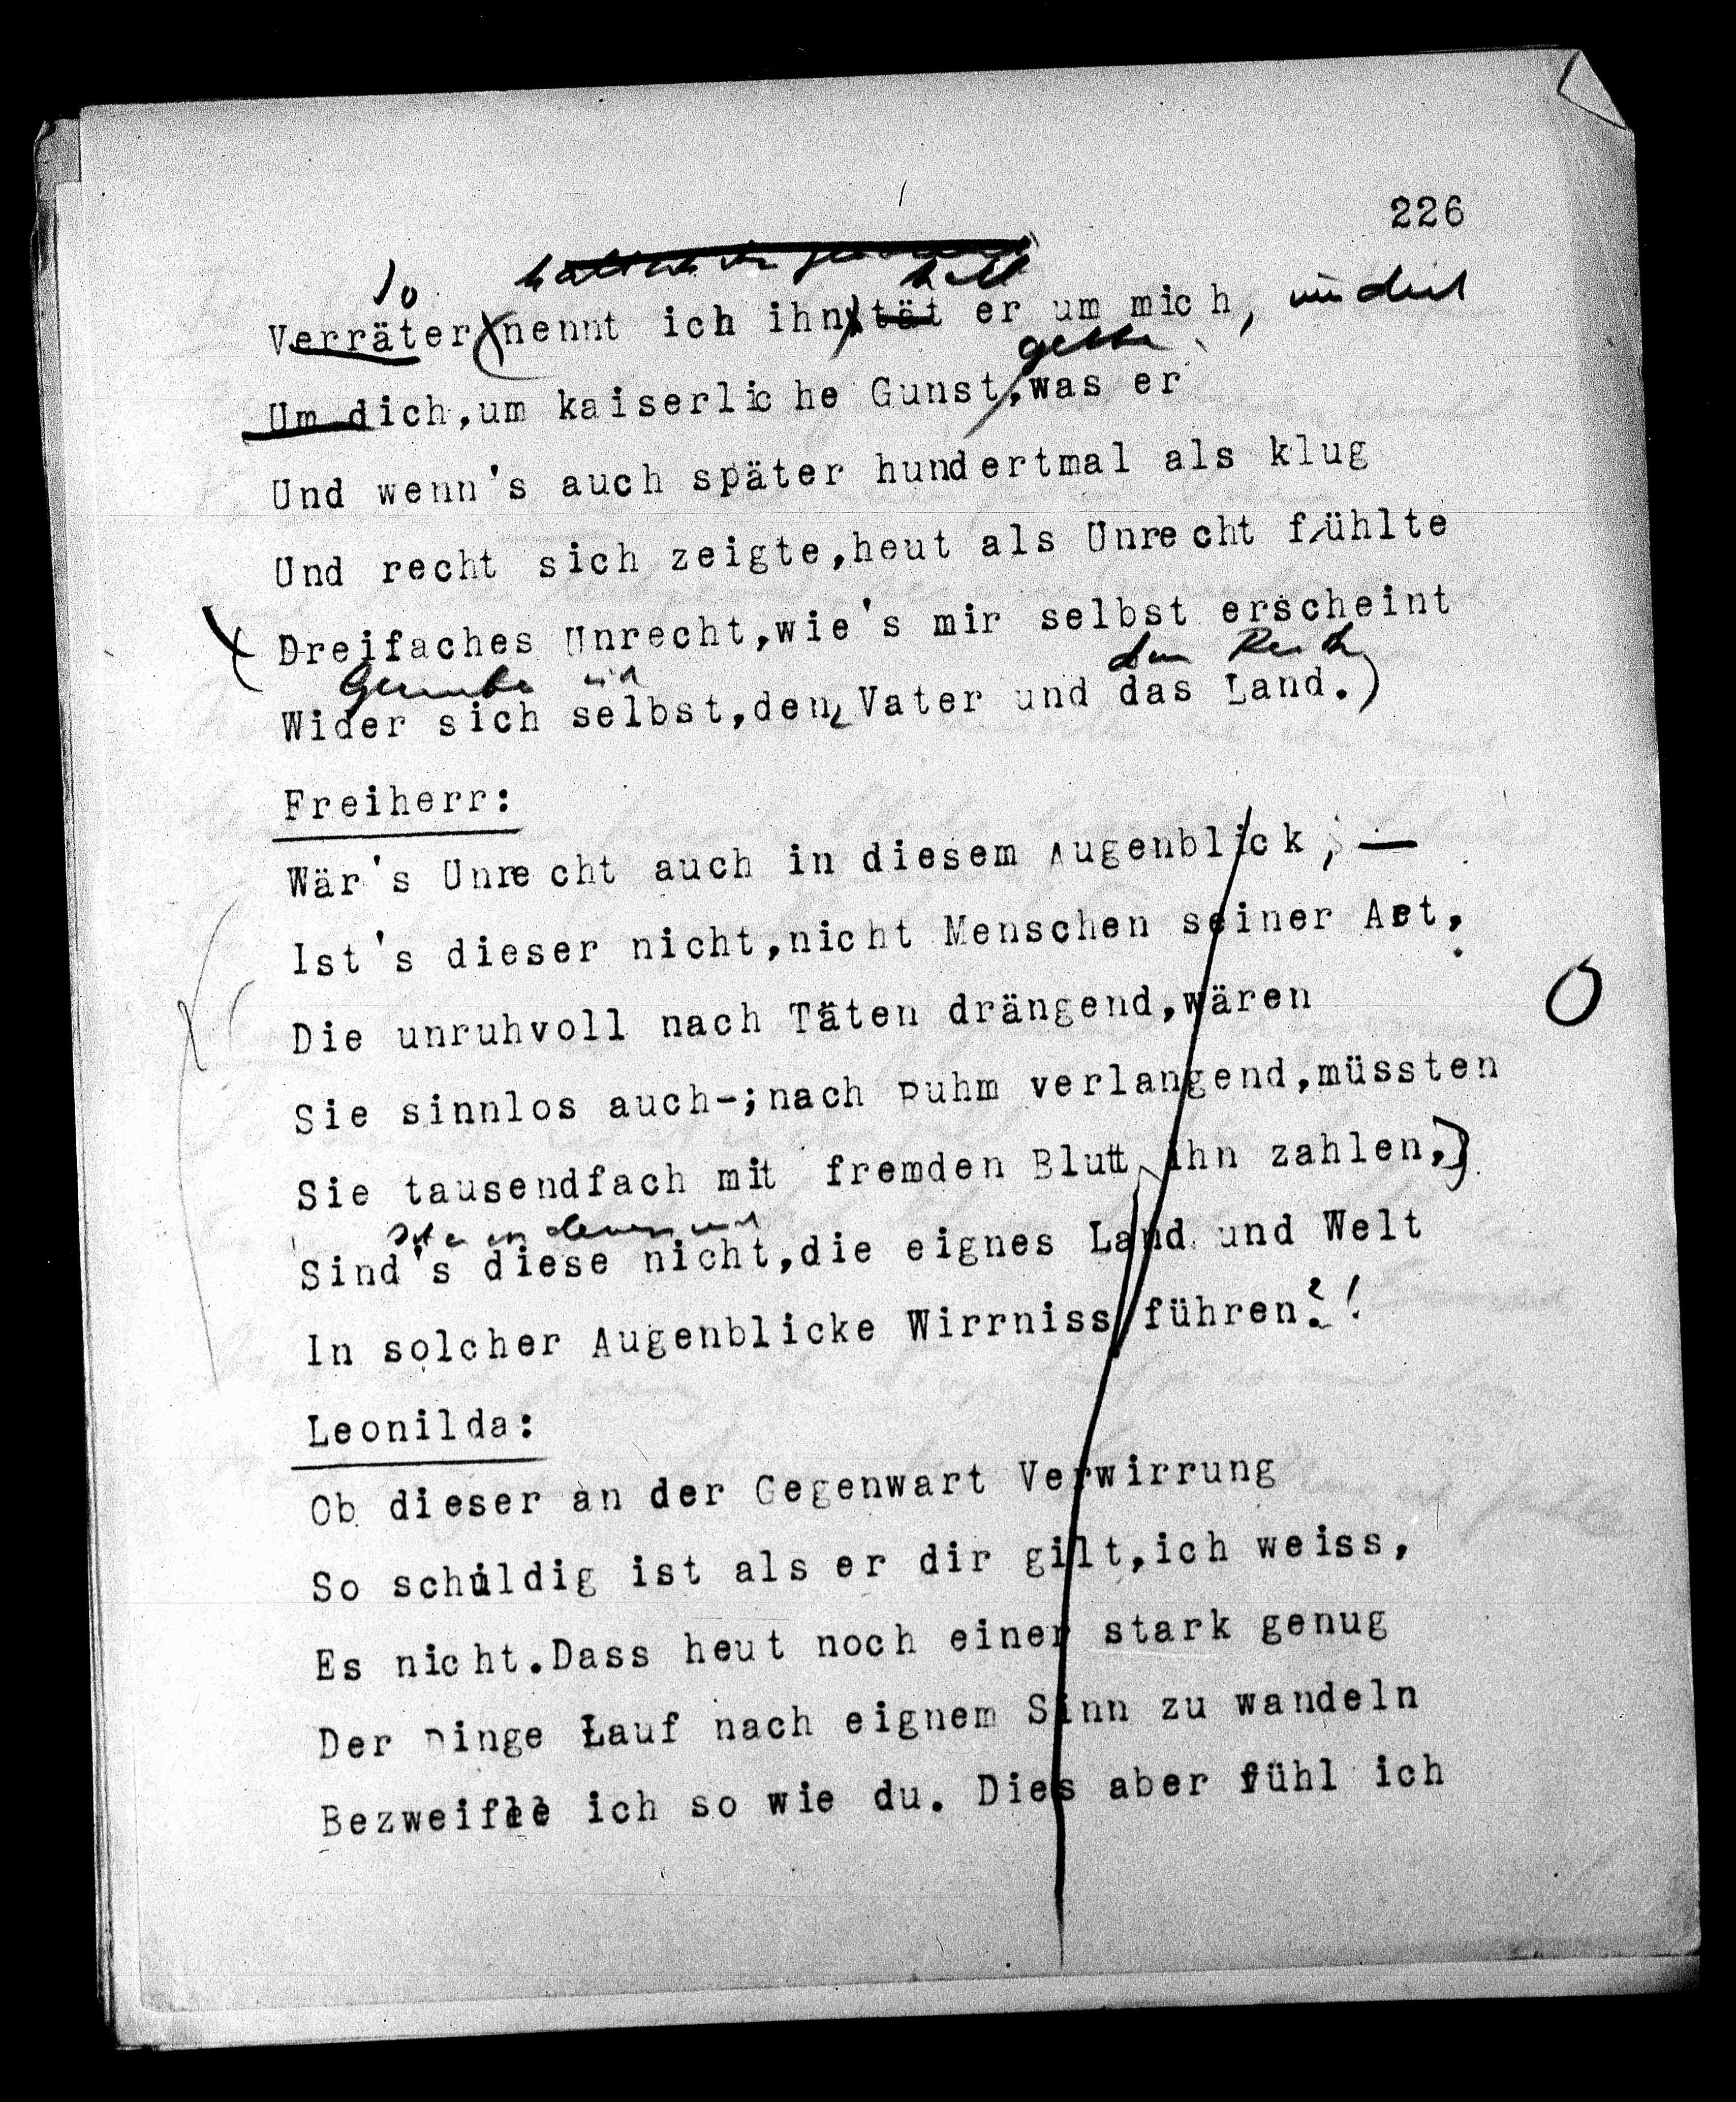 226
So
Verräter nennt ich ihn, tät er um mich,
Um dich,um kaiserliche Gunst,was er
Und wenn's auch später hundertmal als klug
Und recht sich zeigte,heut als Unrecht fühlte
Dreifaches Unrecht,wie's mir selbst erscheint
Wider sich selbst,den Vater und das Land.)
Freiherr:
Wär's Unrecht auch in diesem Augenblick, —
Ist's dieser nicht,nicht Menschen seiner Art,
Die unruhvoll nach Täten drängend,wären
Sie sinnlos auch-;nach Ruhm verlangend,müssten
Sie tausendfach mit fremden Blutt ihn zahlen,)
Sind's diese nicht,die eignes Land und Welt
In solcher Augenblicke Wirrniss führen?!
Leonilda:
Ob dieser an der Gegenwart Verwirrung
So schuldig ist als er dir gilt,ich weiss,
Es nicht.Dass heut noch einer stark genug
Der Dinge Lauf nach eignem Sinn zu wandeln
Bezweifle ich so wie du. Dies aber fühl ich